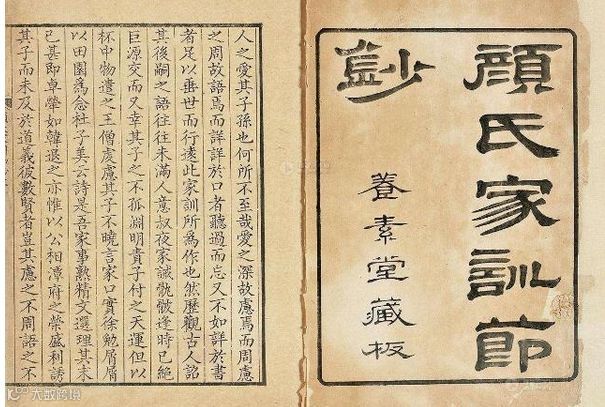 顏氏家訓節
鈔
養素堂藏板
人之愛其子孫也何所不至哉愛之深故慮焉而周慮
之周故語焉而詳詳於口者聽過而忘又不如詳於書
者足以垂世而行遠此家訓所為作也然歷觀古人詔
其後嗣之語往往未滿人意叔夜家誡骫骳逢時已絕
巨源交而又幸其子之不孤淵明責子付之天運但以
杯中物遣之王僧虔慮其子不曉言家口實徐勉屑屑
以田園為念杜子美云詩是吾家事熟精文選理其末
已甚即卓犖如韓退之亦惟以公相潭府之榮盛利誘
其子而未及於道義彼數賢者豈其慮之不周語之不
大数跨境